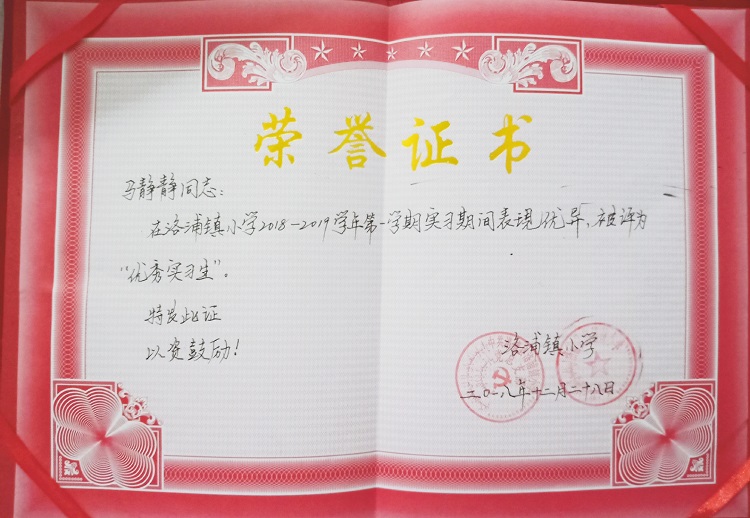 荣誉证书
马静静同志：
在洛浦镇小学2018-2019学年第一学期实习期间表现优异，被评为
“优秀实习生”。
特发此证
以资鼓励！
洛浦镇小学
二〇一八年十二月二十八日